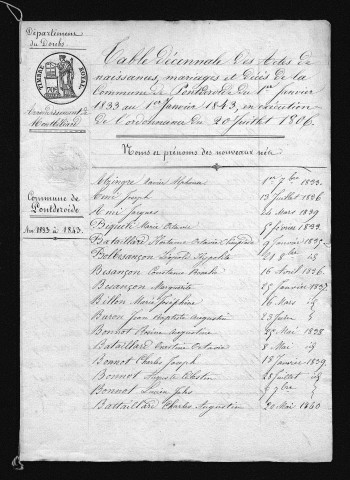 Département
du Doubs
TIMBRE ROYAL
Arrondissement de
Montbéliard
Commune de
Pontderoide
An 1833 à 1843.
Table décennale Des Actes de
naissances, mariages et décès de la
Commune de Pontderoide du 1er Janvier
1833 au 1er Janvier 1843, en exécution
de l'ordonnance du 20 Juillet 1806.
Noms et prénoms des nouveaux nés
Alzingre Xavier Alphonse 1er 7bre 1833.
Amé Joseph 13 Juillet 1836
Amé Jacques 24 Mars 1839
Bigueti Marie Octavie 5 février 1833.
Bataillard 9 Janvier 1835.
Hypolite 21 8bre id
Besançon Constance 16 Août 1836.
Besançon Marguerite 25 Janvier 1837.
Billon Marie Joséphine 16 Mars id
Buron Jean Baptiste Augustin id
Bonnot Augustine 1838
Bataillard Octavie 8 Mai id
Bonnot Charles Joseph 13 Janvier 1839.
Bonnot Auguste 28 Juillet id
Bonnot Lucien Jules 9 7bre id
Battaillard Charles Augustin 20 Mai 1840